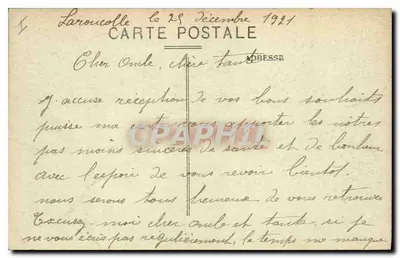 Laroucolle le 25 décembre 1921
CARTE POSTALE
ADRESSE
Cher oncle, chère tante
J'accuse réception de vos bons souhaits
puisse ma vous apporter les nôtres
pas moins sincères de santé et de bonheur
avec l'espoir de vous revoir bientot.
nous serons tous heureux de vous retrouver
Excusez moi cher oncle et tante si je
ne vous écris pas regulièrement, le temps me manque